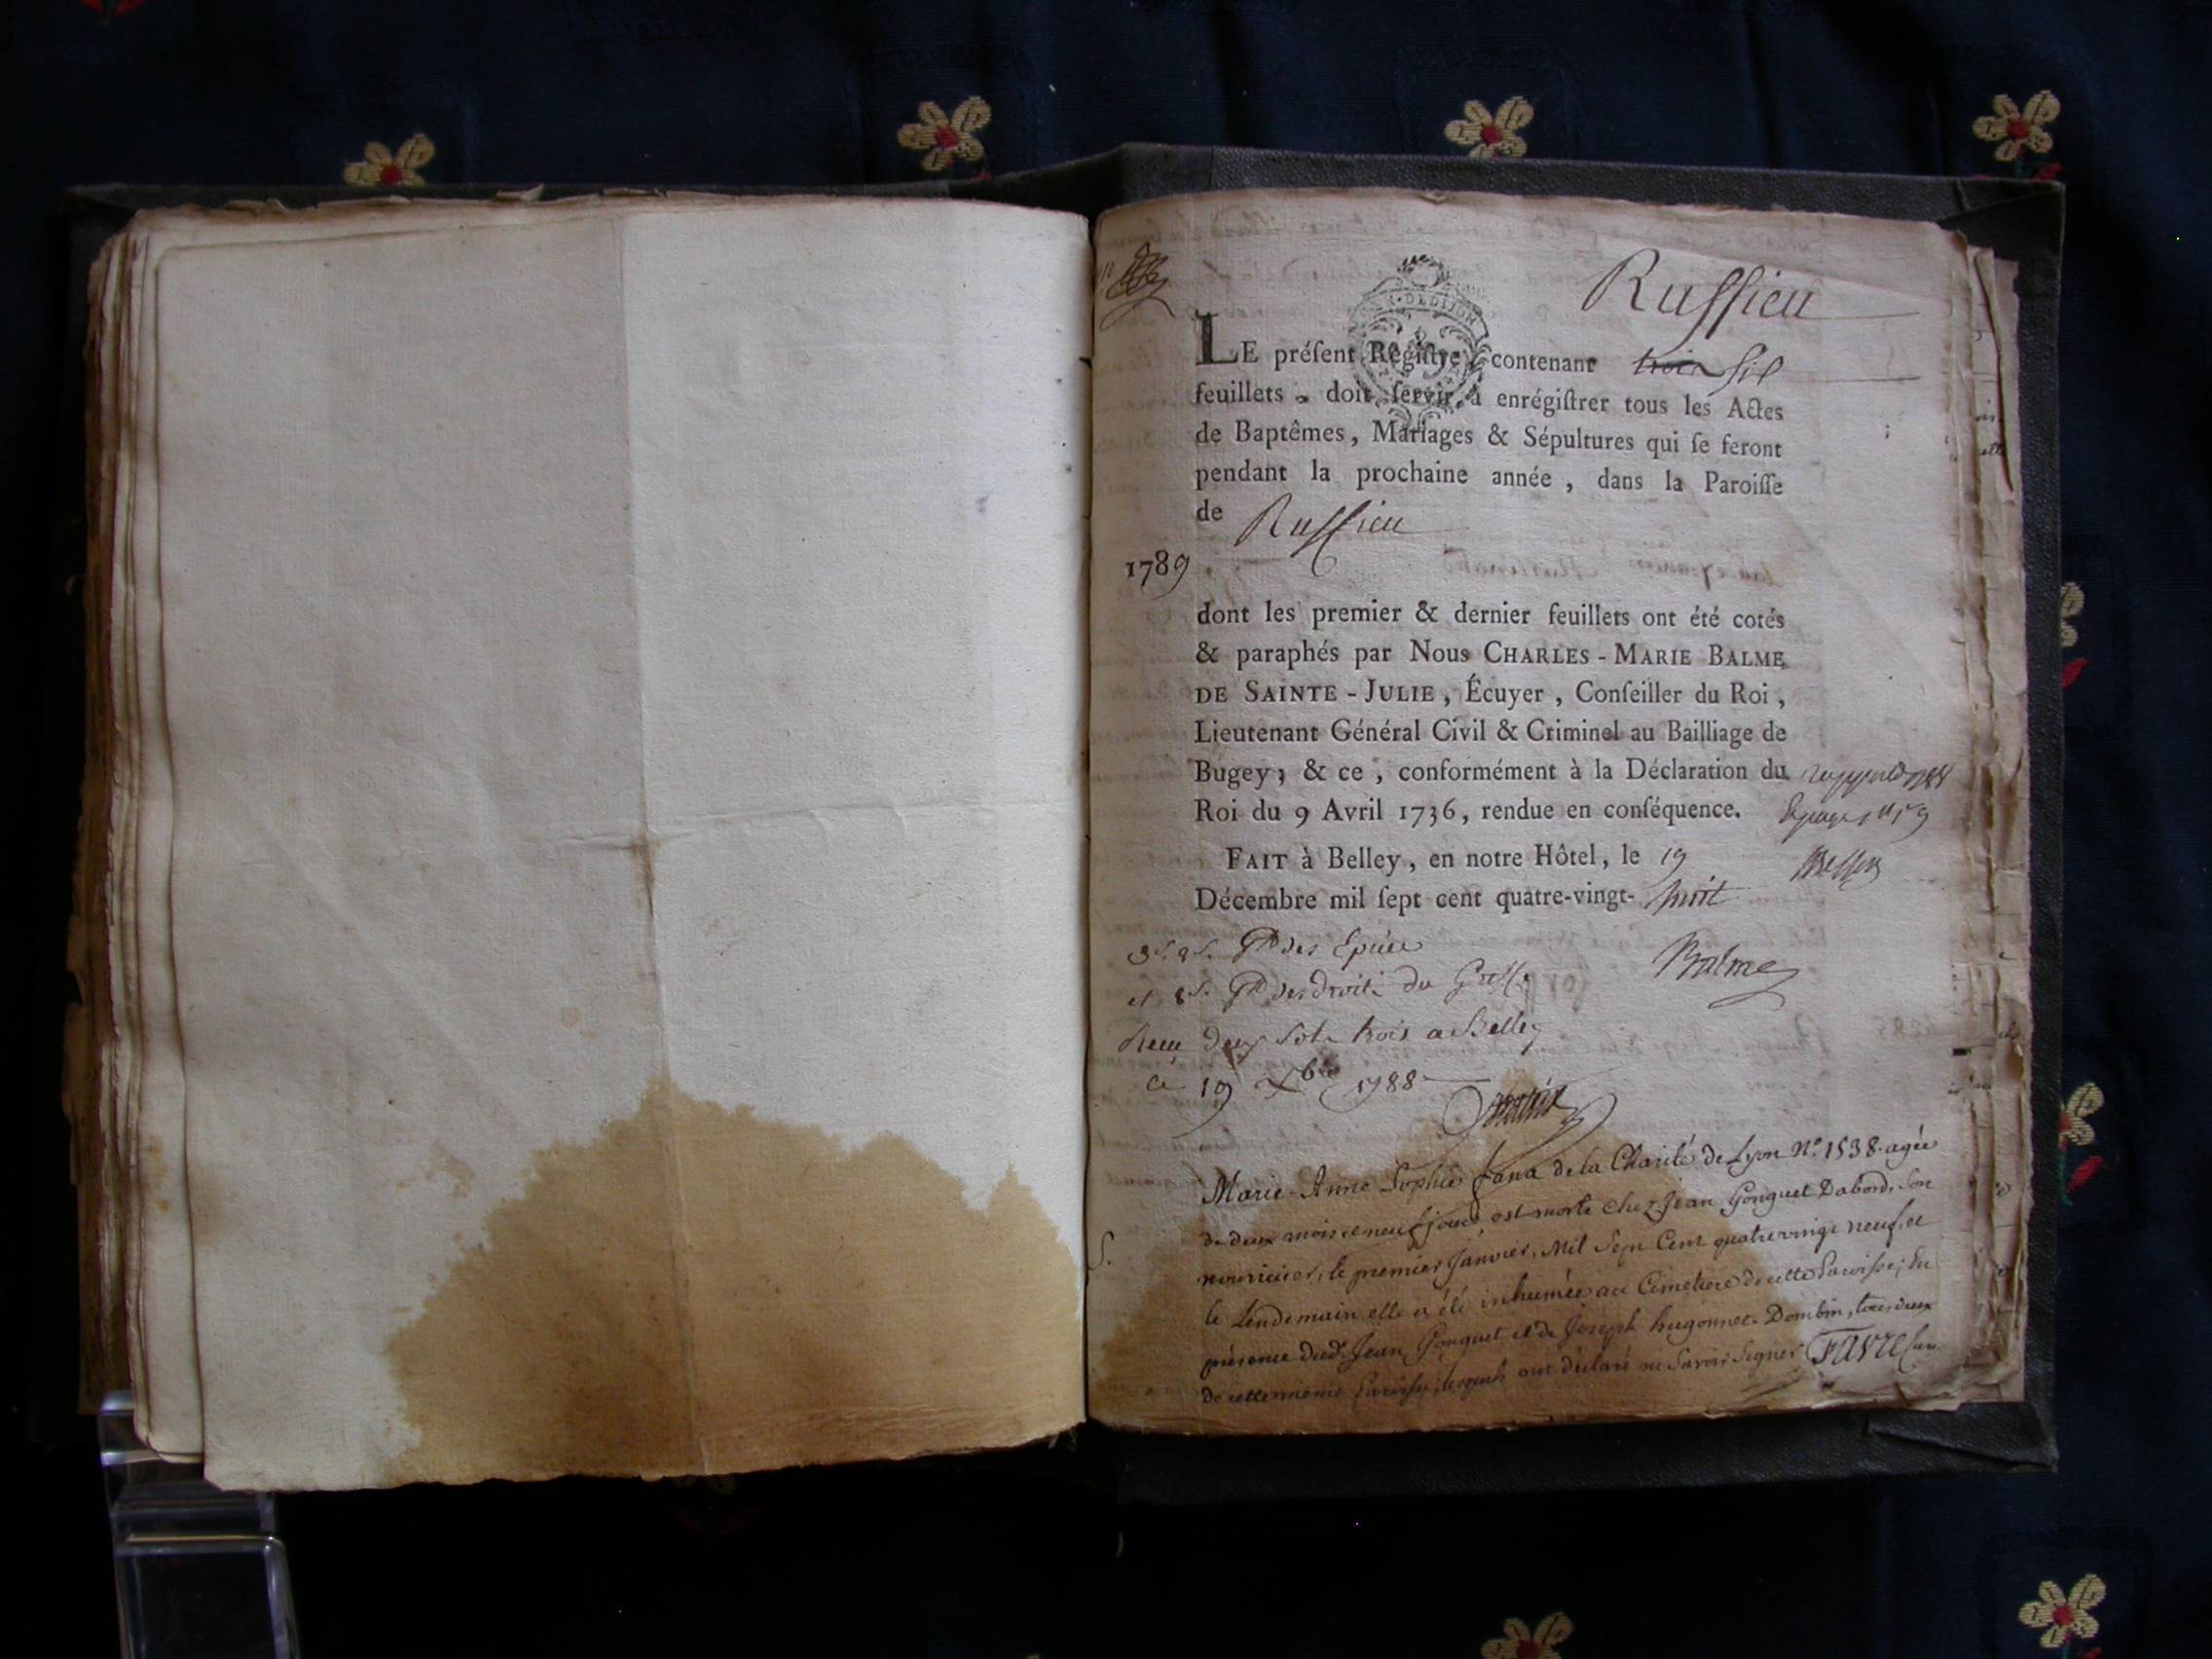 Russieu
LE préſent Regiſtre, contenant trois six
feuillets, doit ſervir à enrégiſtrer tous les Actes
de Baptêmes, Mariages & Sépultures qui ſe feront
pendant la prochaine année, dans la Paroiſſe
de Russieu
1789
dont les premier & dernier feuillets ont été cotés
& paraphés par Nous CHARLES-MARIE BALME
DE SAINTE-JULIE, Écuyer, Conſeiller du Roi,
Lieutenant Général Civil & Criminel au Bailliage de
Bugey; & ce, conformément à la Déclaration du
Roi du 9 Avril 1736, rendue en conſéquence.
FAIT à Belley, en notre Hôtel, le 19
Décembre mil ſept cent quatre-vingt-huit
Balme
des Epices
et des droits du Greffe
Reçu deux sols trois a Belley
ce 19 Xbre 1788
Marie-Anne Sophie Jana de la Charité de Lyon N.o 1538. agée
de deux mois et neuf jours, est morte chez Jean Gonguet Dabord, son
nourricier, le premier Janvier, Mil Sept Cent quatrevingt neuf, et
le Lendemain elle a été inhumée au Cimetiere de cette Paroisse; En
présence dud.t Jean Gonguet et de Joseph hugonnet Dombin, tous deux
de cette même Paroisse, lesquels ont déclaré ne Savoir Signer. Favre Curé